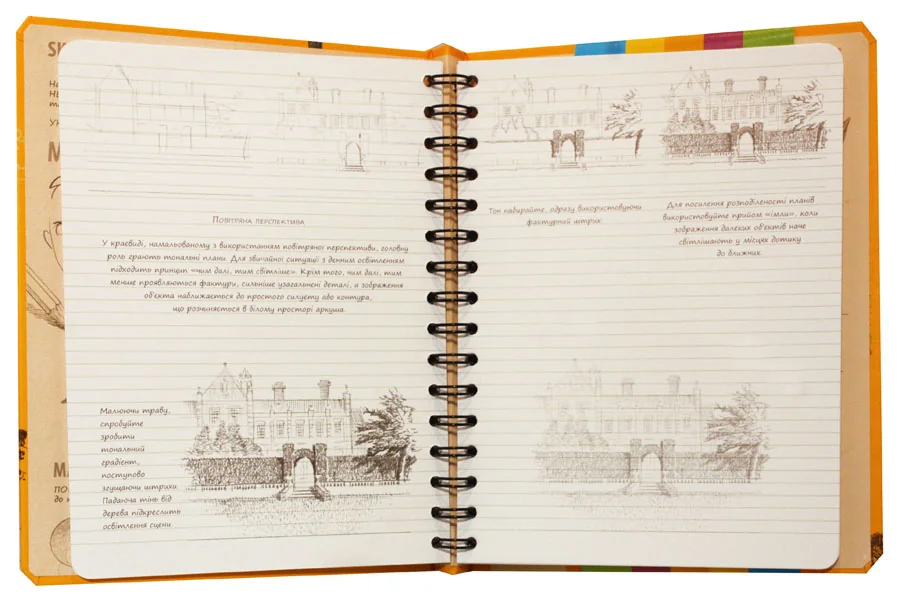 ПОВІТРЯНА ПЕРСПЕКТИВА
У краєвиді, намальованому з використанням повітряної перспективи, головну
роль грають тональні плани. Для звичайної ситуації з денним освітленням
підходить принцип «чим далі, тим світліше». Крім того, чим далі, тим
менше проявляються фактури, сильніше узагальнені деталі, а зображення
об'єкта наближається до простого силуету або контура,
що розчиняється в білому просторі аркуша.
Малюючи траву,
спробуйте
зробити
тональний
градієнт,
поступово
згущаючи штрихи.
Падаюча тінь від
дерева підкреслить
освітлення сцени.
Тон набирайте, одразу використовуючи
фактурний штрих.
Для посилення розподіленості планів
використовуйте прийом «імли», коли
зображення далеких об'єктів наче
світлішають у місцях дотику
до ближніх.